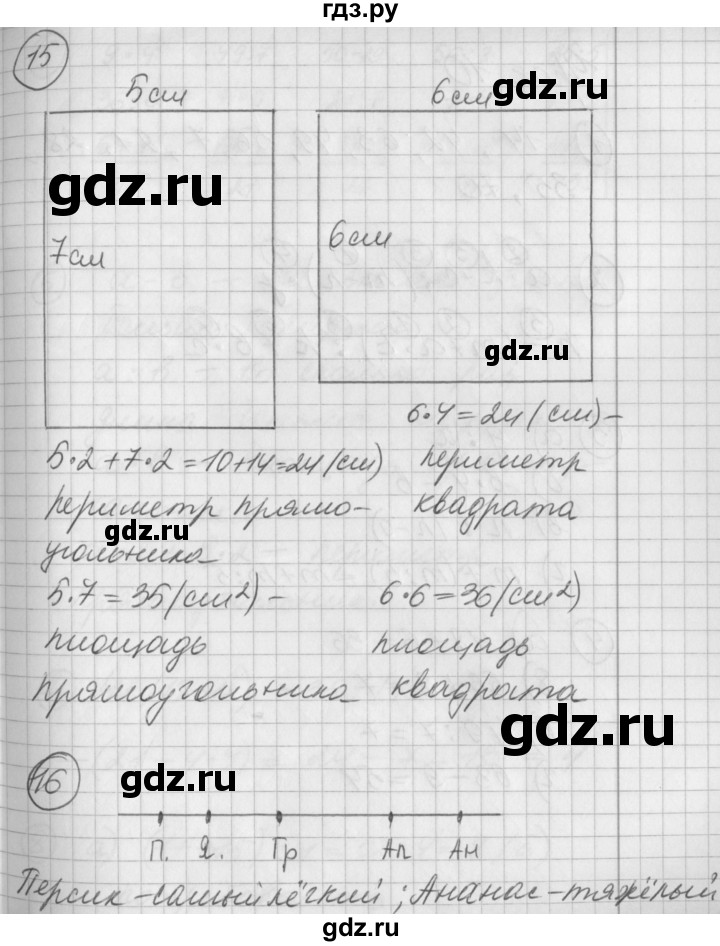 гдз.ру
15
5см
6см
gdz.ru
gdz.ru
7см
6см
gdz.ru
6·4=24(см)–
5·2+7·2=10+14=24(см)
периметр
периметр прямо-
квадрата
gdz.ru
угольника
5·7=35(см²)–
6·6=36(см²)
площадь
площадь
прямоугольника
квадрата
gdz.ru
16
gdz.ru
П. Я. Гр Ап Ан
Персик–самый лёгкий; Ананас–тяжёлый
gdz.ru